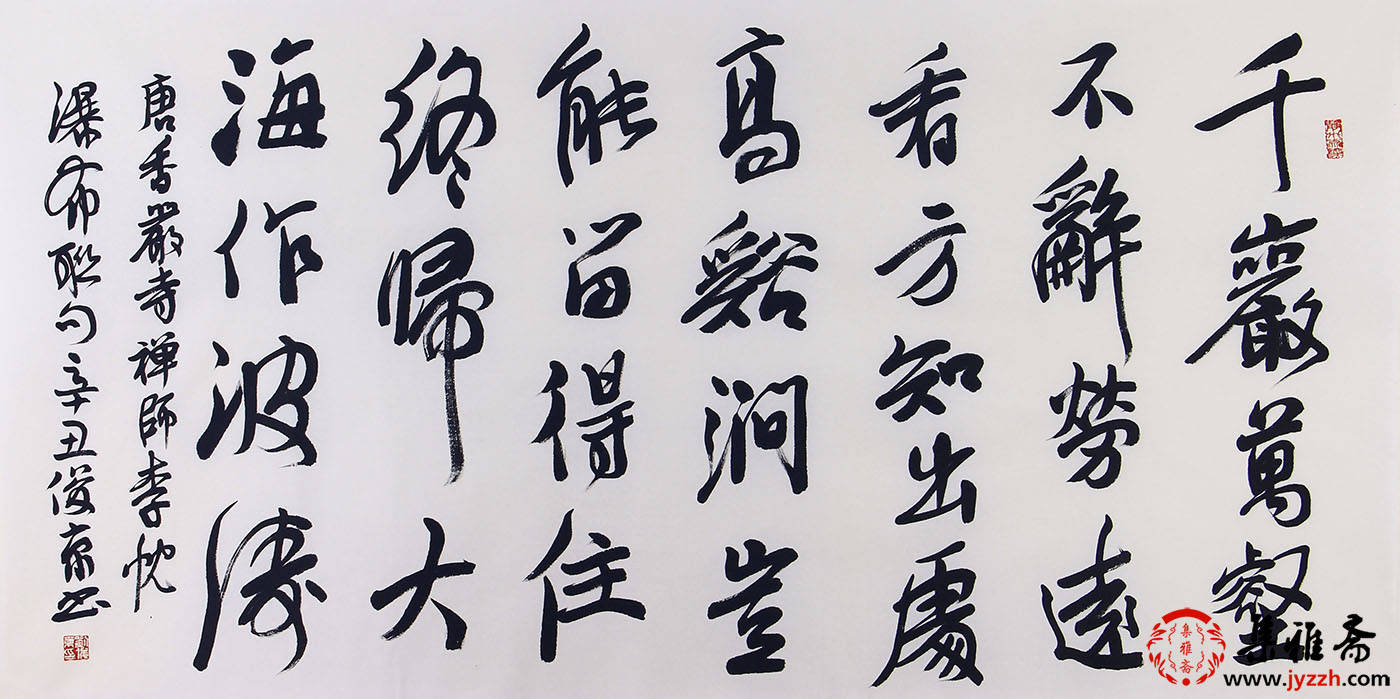 千巖萬壑
不辭勞遠
看方知出處
高谿澗豈
能留得住
終歸大
海作波濤
唐香嚴寺禪師李忱
瀑布聯句辛丑俊京书
集雅斋
www.jyzzh.com
集雅斋